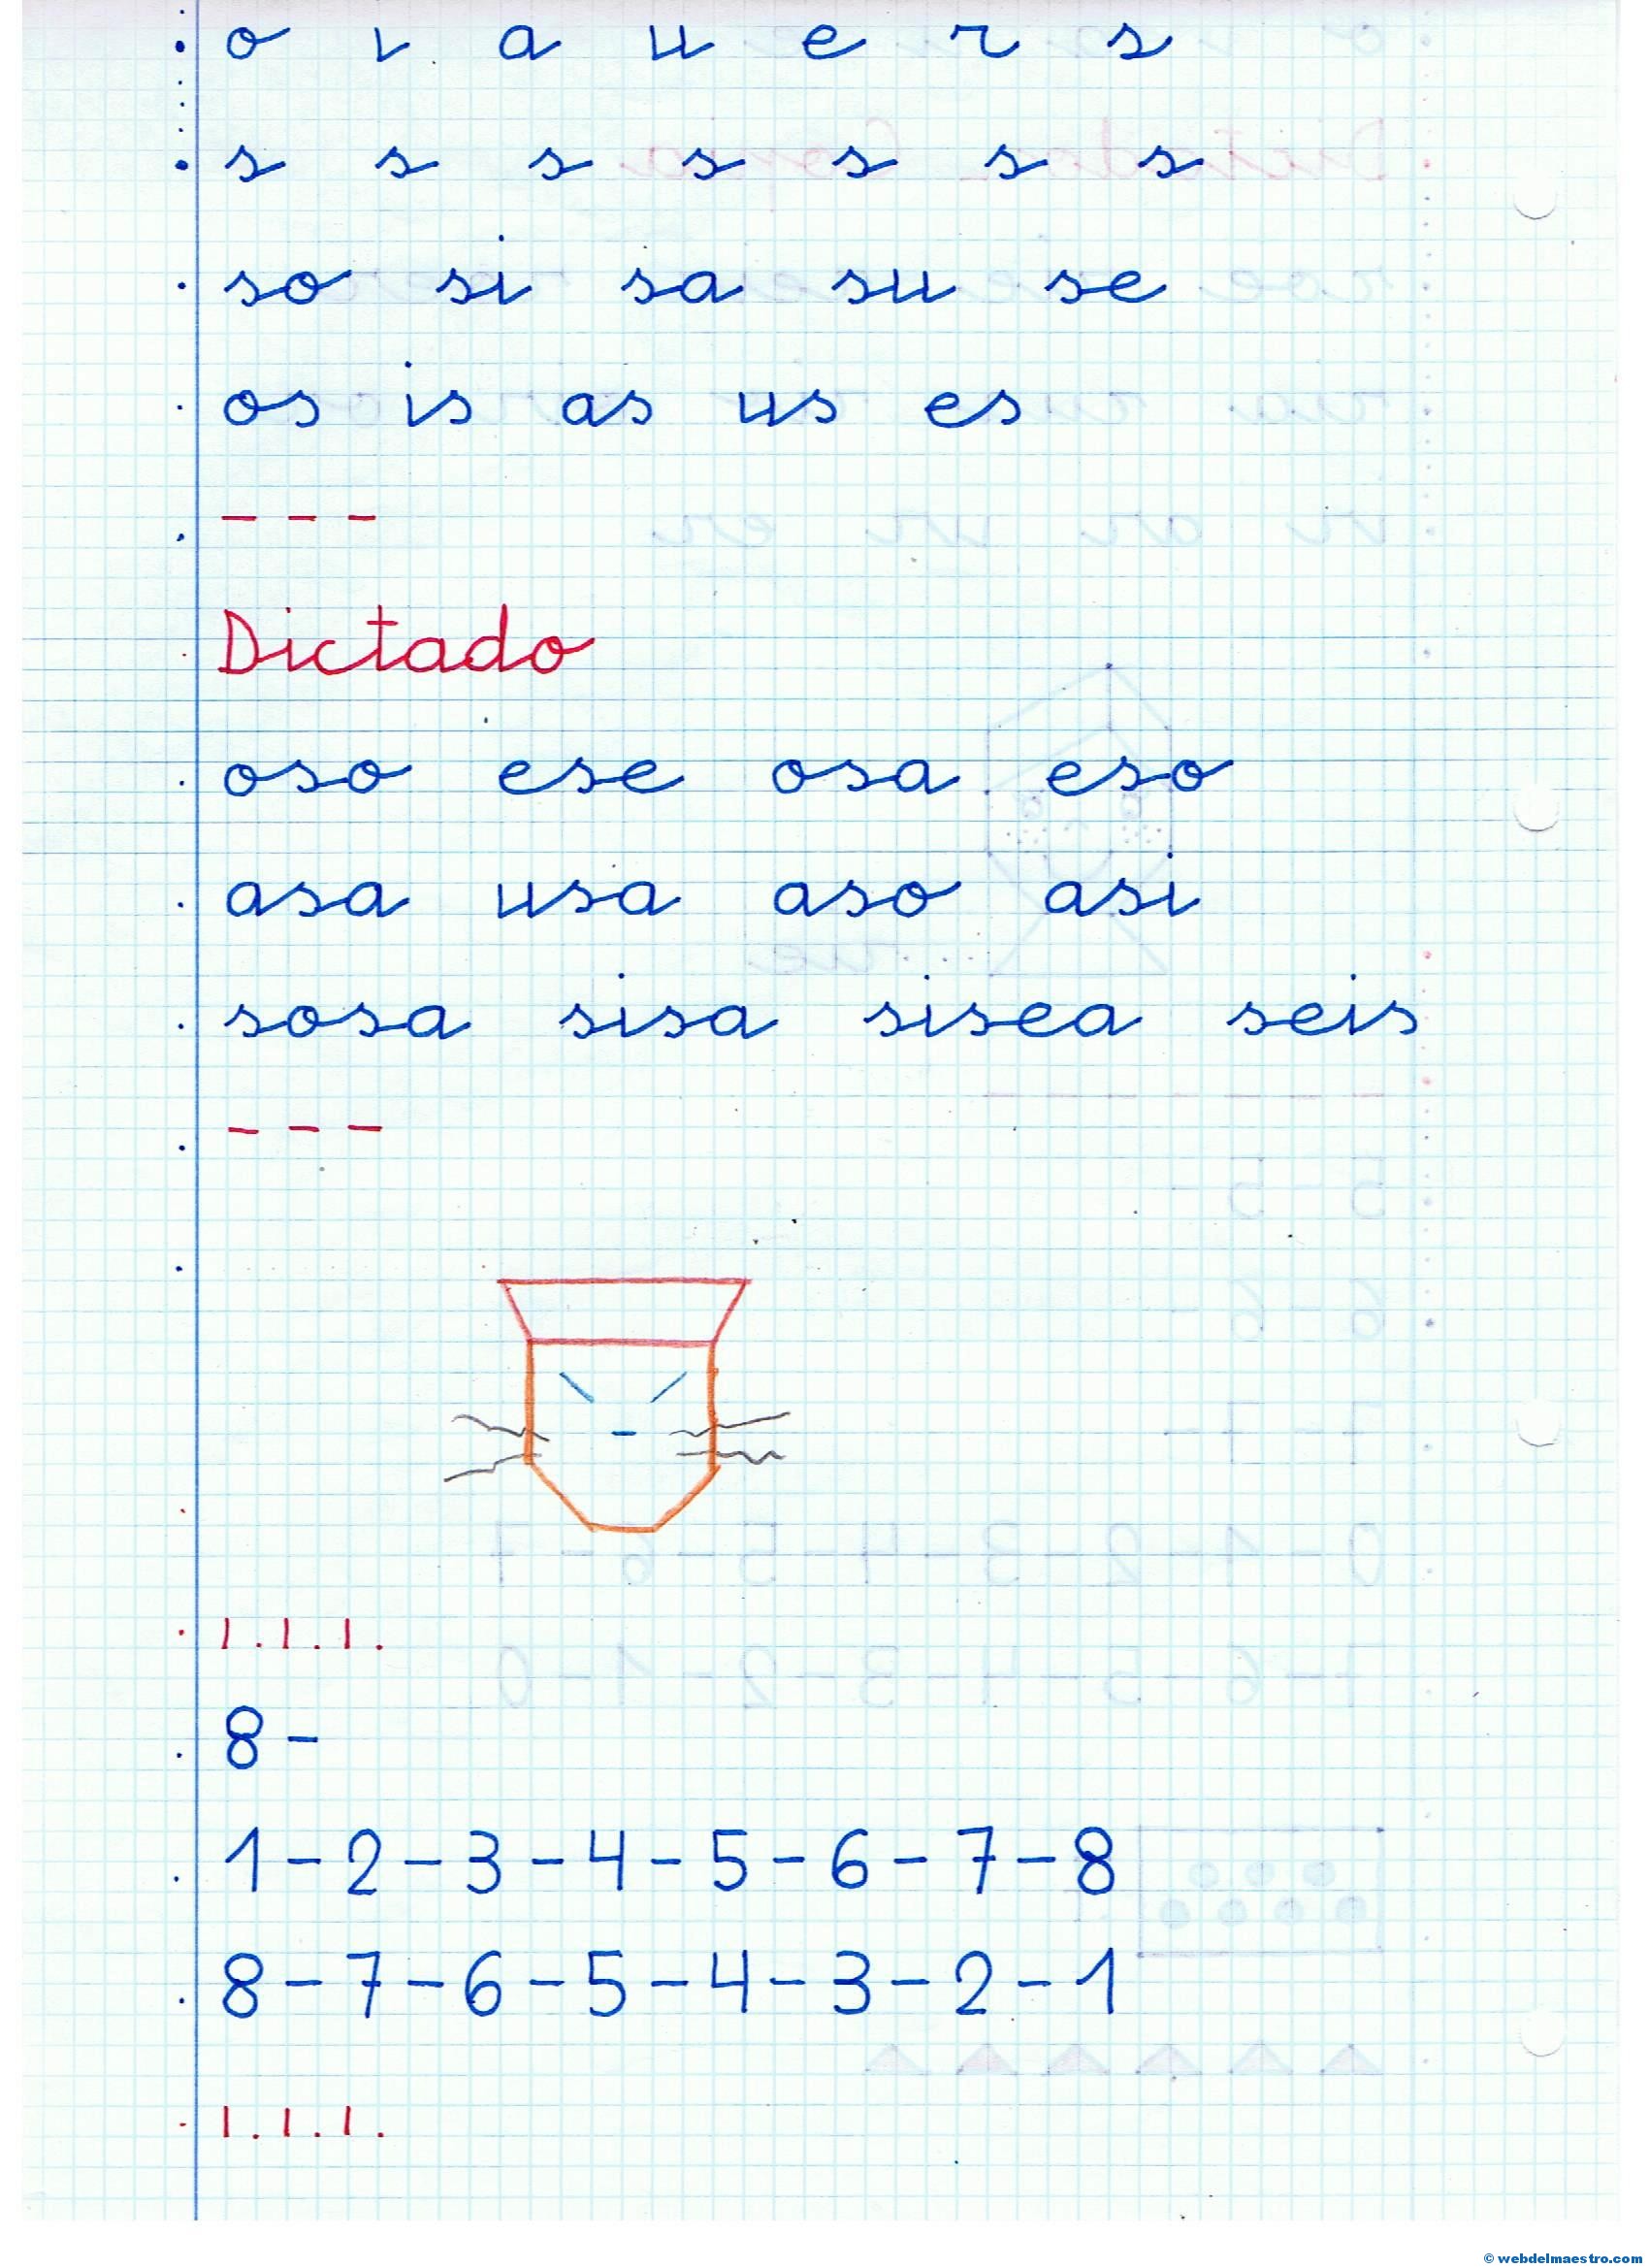 o i a u e r s
s s s s s s s
so si sa su se
os is as us es
- - -
Dictado
oso ese osa eso
asa usa aso asi
sosa sisa sisea seis
- - -
1.1.1.
8-
1-2-3-4-5-6-7-8
8-7-6-5-4-3-2-1
1.1.1.
© webdelmaestro.com